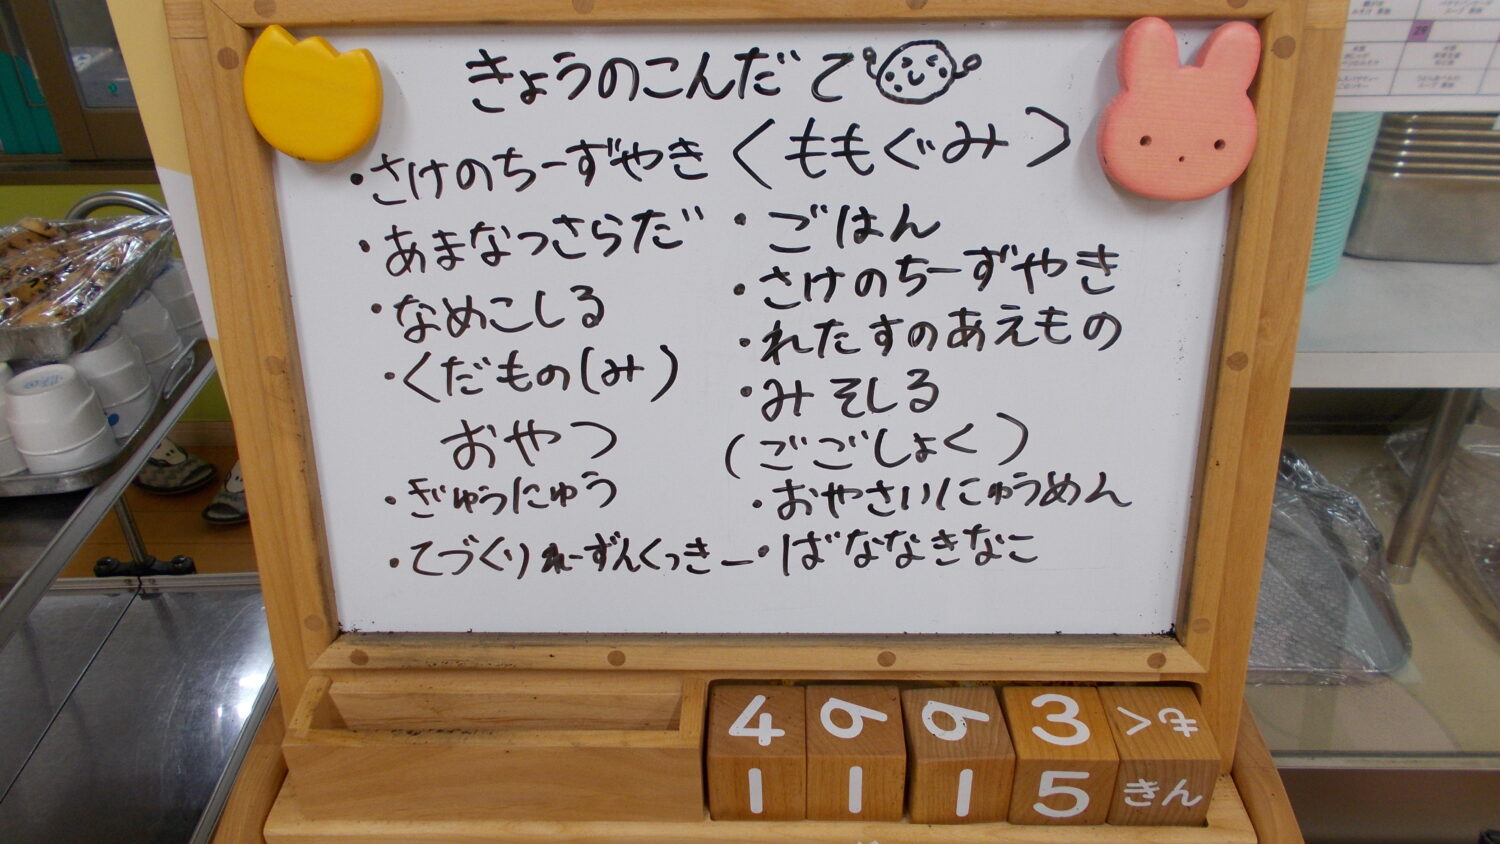 きょうのこんだて
・さけのちーずやき
・あまなっさらだ
・なめこしる
・くだもの(み)
おやつ
・ぎゅうにゅう
・てづくりれーずんくっきー
〈ももぐみ〉
・ごはん
・さけのちーずやき
・れたすのあえもの
・みそしる
(ごごしょく)
・おやさいにゅうめん
・ばななきなこ
4 6 6 3 もく
1 1 1 5 きん
29